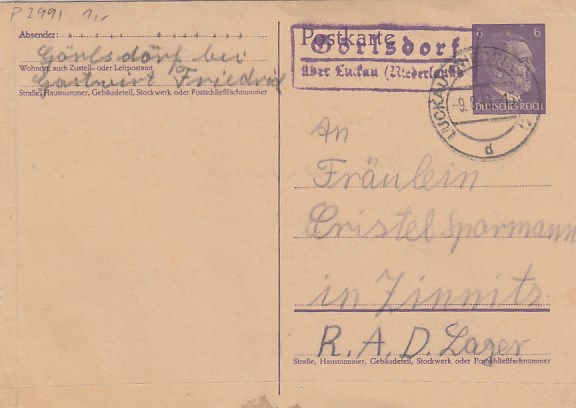 P 2991 1,-
Absender:
Görlsdorf bei
Wohnort, auch Zustell- oder Leitpostamt
Gastwirt Friedrich
Straße, Hausnummer, Gebäudeteil, Stockwerk oder Postschließfachnummer
Postkarte
Görlsdorf
über Luckau (Niederlausitz)
6 6
DEUTSCHES REICH
LUCKAU
-9.
d
An
Fräulein
Cristel Sparmann
in Zinnitz
R. A. D. Lager
Straße, Hausnummer, Gebäudeteil, Stockwerk oder Postschließfachnummer